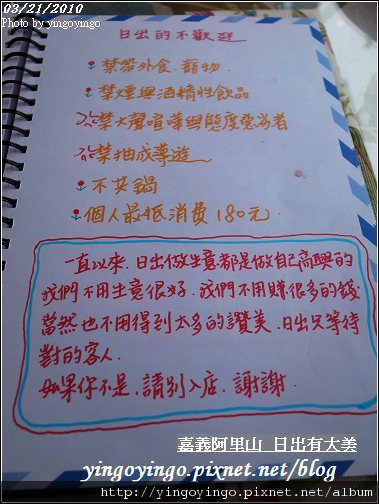 03/21/2010
Photo by yingoyingo
日出的不歡迎
禁帶外食.寵物.
禁煙與酒精性飲品
禁大聲喧嘩與態度惡劣者
禁抽成導遊
不共鍋
個人最抵消費180元.
一直以來.日出做生意都是做自己高興的
我們不用生意很好.我們不用賺很多的錢
當然也不用得到太多的讚美.日出只等待
對的客人.
如果你不是,請別入店.謝謝.
嘉義阿里山 日出有大美
yingoyingo.pixnet.net/blog
http://yingoyingo.pixnet.net/album